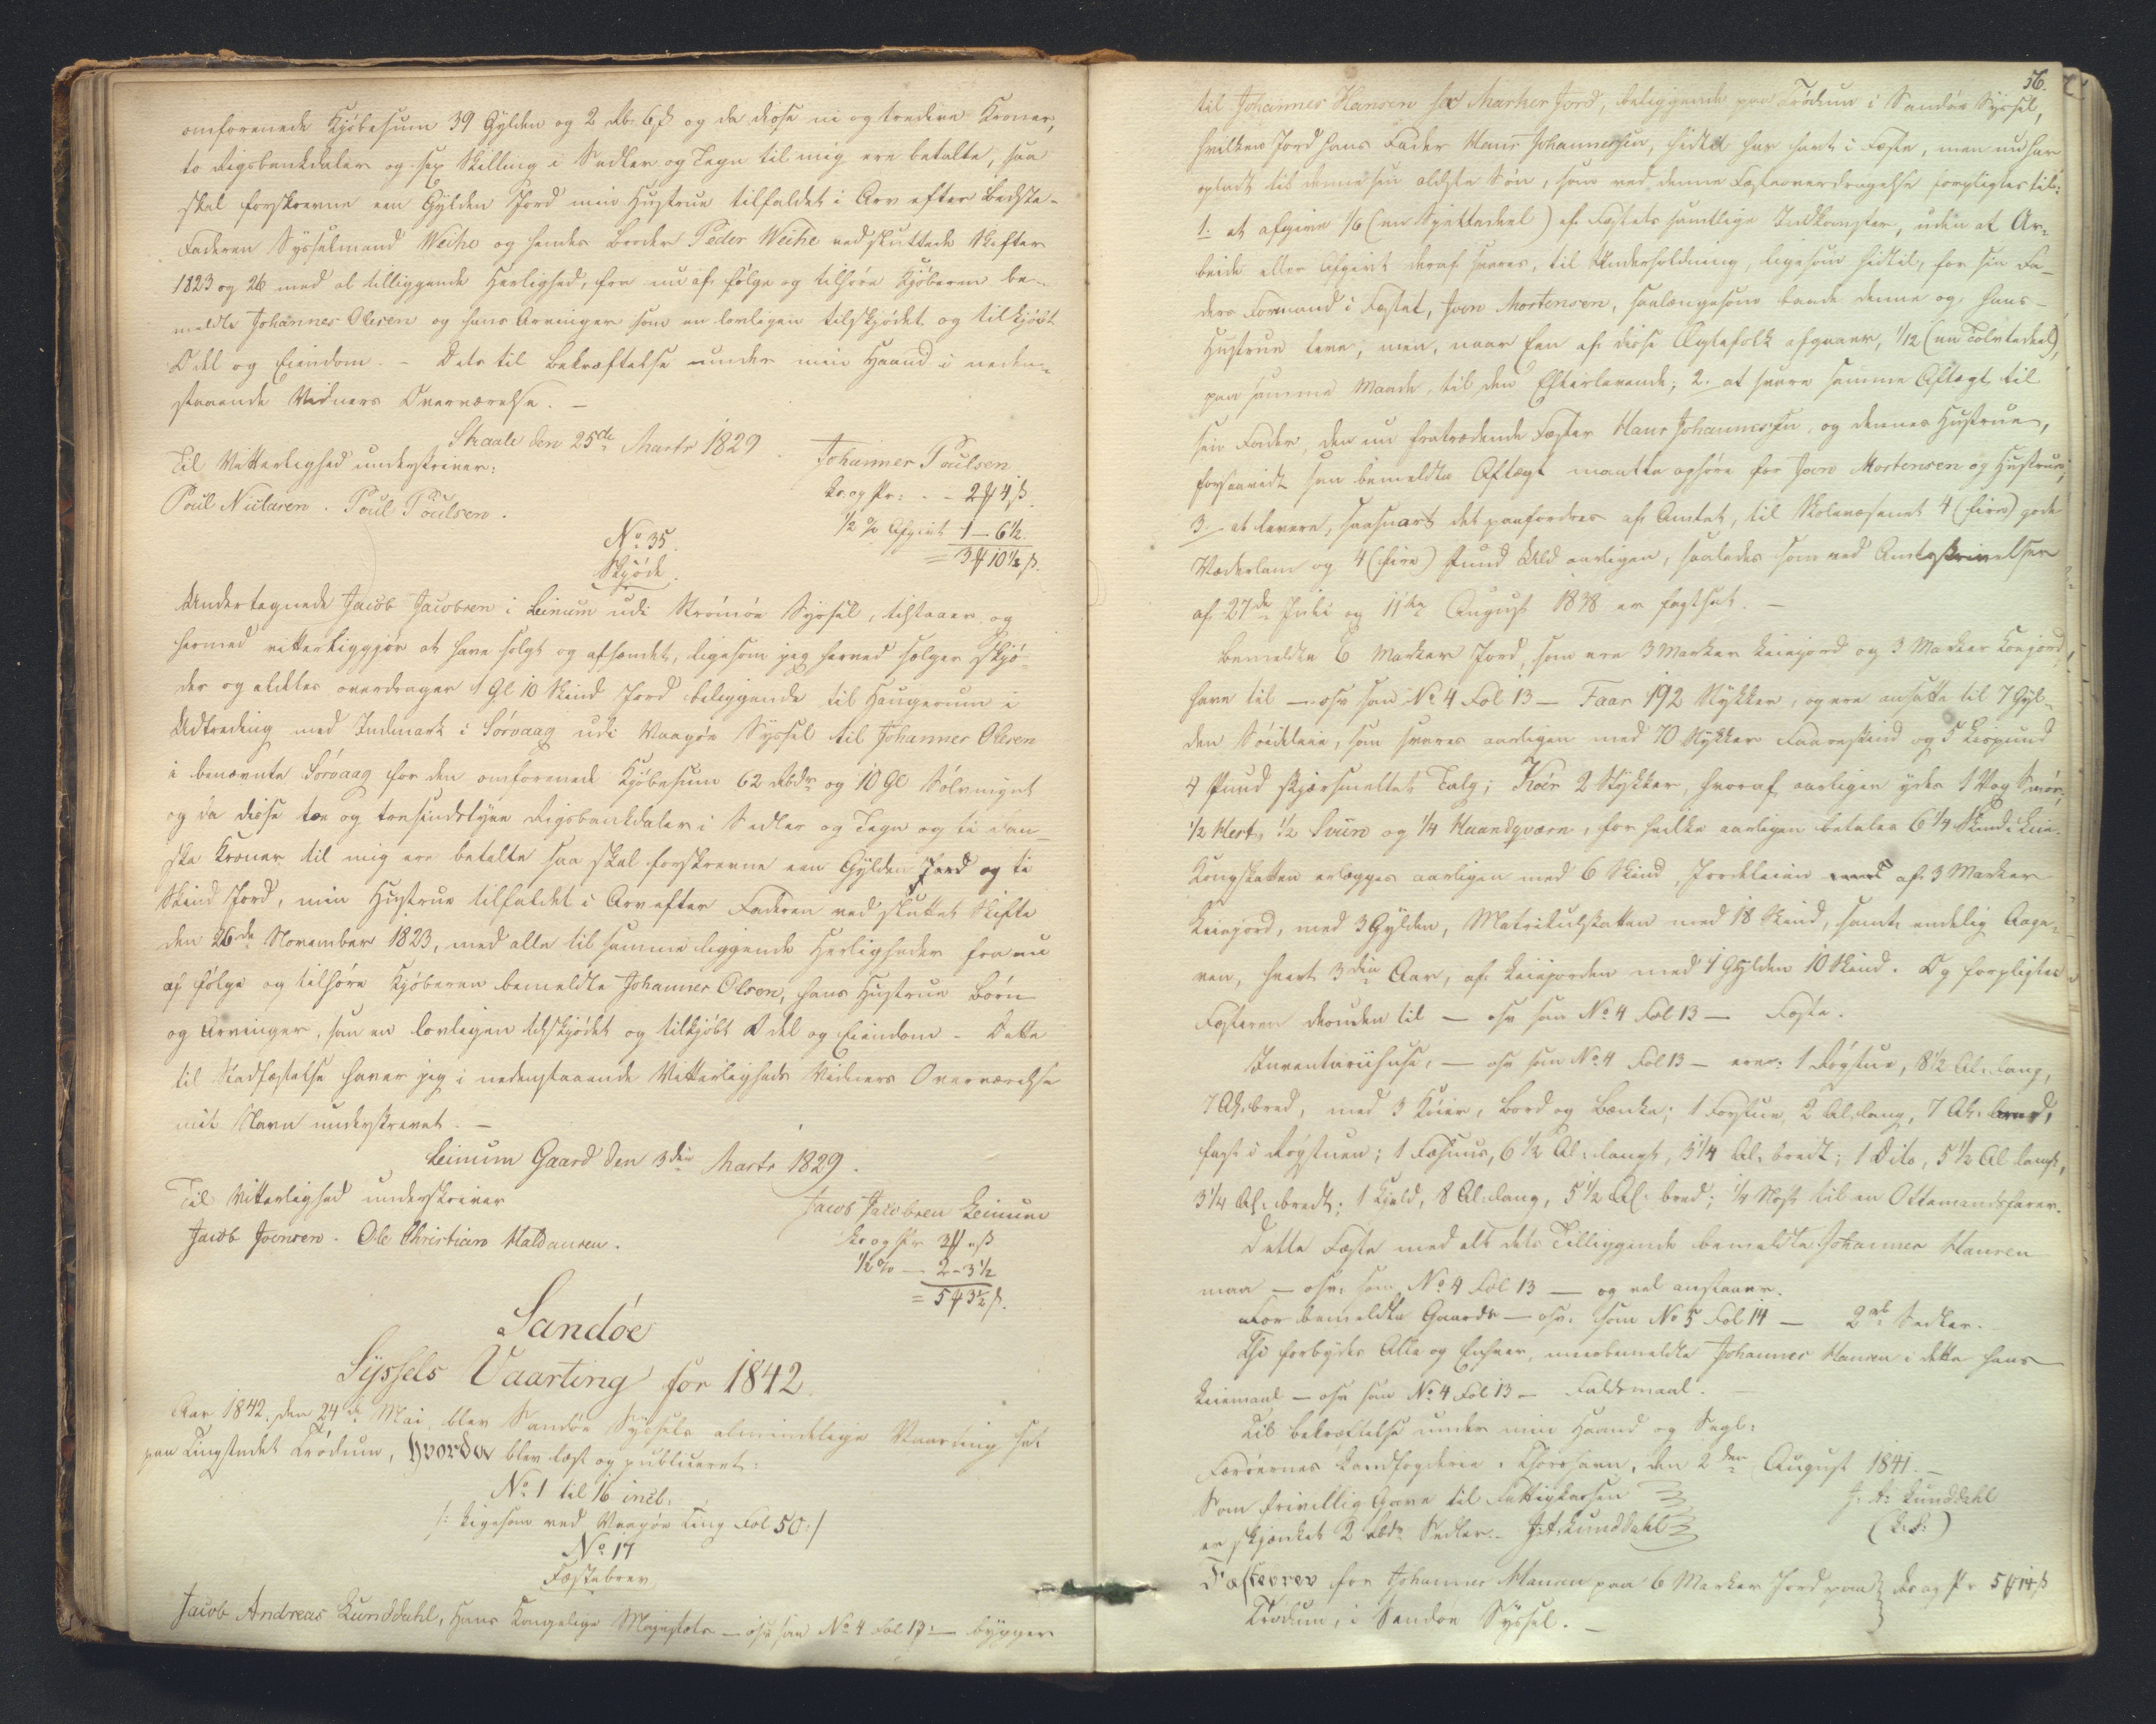 omforenede Kjöbesum 39 Gylden og 2 Rb. 6 ß og da disse ni og tredive Kroner,
to Rigsbankdaler og sex Skilling i Sedler og Tegn til mig ere betalte, saa
skal forskrevne een Gylden Jord min Hustrue tilfaldet i Arv efter Bedste-
Faderen Sysselmand Weihe og hendes Broder Peder Weihe ved sluttede Skifter
1823 og 26 med al tilliggende Herlighed, fra nu af følge og tilhøre Kjøberen be-
meldte Johannes Olesen og hans Arvinger som en lovligen tilskjødet og tilkjøbt
Odel og Eiendom. – Dets til Bekræftelse under min Haand i neden-
staaende Vidners Overværelse. –
Skaale den 25de Marts 1829.
Til Vitterlighed underskriver:
Johannes Poulsen
Poul Niclasen. Poul Poulsen.
Kr. og Pr: . – 2 4 ß.
½ % Afgivt 1 – 6½.
= 3 10½ ß.
No 35.
Skjöde.
Undertegnede Jacob Jacobsen i Leinum udi Strömöe Syssel, tilstaaer og
hermed vitterliggjør at have solgt og afhændet, ligesom jeg herved sælger skjö-
der og aldeles overdrager 1 Gl 10 Skind Jord beliggende til Haugerum i
Udtreding med Indmark i Sörvaag udi Waagöe Syssel til Johannes Olesen
i benævnte Sörvaag for den omforenede Kjøbesum 62 Rbdr og 10 Gl Sølvmynt
og da disse toe og tresindstyve Rigsbankdaler i Sedler og Tegn og ti dan-
ske Kroner til mig ere betalte saa skal forskrevne een Gylden Jord og ti
Skind Jord, min Hustrue tilfaldet i Arv efter Faderen ved sluttet Skifte
den 26de November 1823, med alle til samme liggende Herligheder fra nu
af følge og tilhöre Kjöberen bemeldte Johannes Olsen, hans Hustrue Börn
og Arvinger, som en lovligen tilskjødet og tilkjøbt Odel og Eiendom – Dette
til Stadfæstelse haver jeg i nedenstaaende Vitterligheds Vidners Overværelse
mit Navn underskrevet. –
Leinum Gaard den 3die Marts 1829.
Til Vitterlighed underskriver
Jacob Jacobsen Leinum
Jacob Joensen. Ole Christian Haldansen.
Kr og Pr 3 " ß
½ % – 2 – 3½
= 5 3½ ß.
Sandöe
Syssels Vaarting for 1842.
Aar 1842. den 24de Mai, blev Sandöe Syssels almindelige Vaarting sat
paa Tingstedet Tródum, hvorda blev læst og publiceret:
No 1 til 16 incl.
/: Ligesom ved Waagöe Ting Fol 50 :/
No 17
Fæstebrev
Jacob Andreas Lunddahl, Hans Kongelige Majestæts – osv som No 4 Fol 13: – bygger
56.
til Johannes Hansen sex Marker Jord, beliggende paa Tródum i Sandöe Syssel,
hvilken Jord hans Fader Hans Johannessen, hidtil har havt i Fæste, men nu har
opladt til denne sin ældste Søn, som ved denne Fæsteoverdragelse forpligtes til:
1. at afgive 1/6 (en Sjettedeel) af Fæstets samtlige Indkomster, uden at Ar-
beide eller Afgivt deraf svares, til Underholdning, ligesom hidtil, for sin Fa-
ders Formand i Fæstet, Joen Mortensen, saalængesom baade denne og hans
Hustrue leve, men, naar Een af disse Ægtefolk afgaaer, 1/12 (en Tolvtedeel),
paa samme Maade, til den Efterlevende; 2. at svare samme Aftægt til
sin Fader, den nu fratrædende Fæster Hans Johannessen, og dennes Hustrue,
forsaavidt som bemeldte Aftægt maatte ophöre for Joen Mortensen og Hustrue;
3. at levere, saasnart det paafordres af Amtet, til Skolevæsenet 4 (fire) gode
Væderlam og 4 (fire) Pund Uld aarligen, saaledes som ved Amtsskrivelser
af 27de Juli og 11te August 1838 er fastsat. –
Bemeldte 6 Marker Jord, som ere 3 Marker Leiejord og 3 Marker Kongjord
have til – osv som No 4 Fol 13 – Faar 192 Stykker, og ere ansatte til 7 Gyl-
den Söideleie, som svares aarligen med 70 Stykker Faareskind og 5 Lispund
4 Pund skjærsmeltet Talg; Köer 2 Stykker, hvoraf aarligen ydes 1 Vog Smör,
½ Hest, ½ Sviin og ¼ Haandqværn, for hvilke aarligen betales 6¼ Skind Leie.
Kongskatten erlægges aarligen med 6 Skind, Jordeleien af 3 Marker
Leiejord, med 3 Gylden, Matrikulskatten med 18 Skind, samt endelig Aaga-
ven, hvert 3die Aar, af Leiejorden med 1 Gylden 10 Skind. Og forpligtes
Fæsteren desuden til – osv som No 4 Fol 13 – Fæste.
Inventariihuse, – osv som No 4 Fol 13 – ere: 1 Rögstue, 8½ Al: lang,
7 Al: bred, med 3 Köier, Bord og Bænke; 1 Forstue, 2 Al: lang, 7 Al: bred,
fast i Rögstuen; 1 Fæhuus, 6½ Al: langt, 5¼ Al: bredt; 1 Dito, 5½ Al langt,
3¼ Al: bredt; 1 Kield, 8 Al: lang, 5½ Al: bred; ¼ Nöst til en Ottemandsfarer.
Dette Fæste med alt dets Tilliggende bemeldte Johannes Hansen
maa – osv: som No 4 Fol 13 – og vel anstaaer.
For bemeldte Gaards – osv. som No 5 Fol 14 – 2 rb Sedler.
Thi forbydes Alle og Enhver, meerbemeldte Johannes Hansen i dette hans
Leiemaal – osv som No 4 Fol 13 – Faldsmaal. –
Til Bekræftelse under min Haand og Segl:
Færöernes Landfogderie i Thorshavn, den 2den August 1841. –
Som frivillig Gave til Fattigkassen
J: A: Lunddahl
er skjænket 2 Rbd Sedler. – J: A: Lunddahl
(L. S.)
Fæstebrev for Johannes Hansen paa 6 Marker Jord paa Kr og Pr 5 14 ß
Tródum, i Sandöe Syssel. –